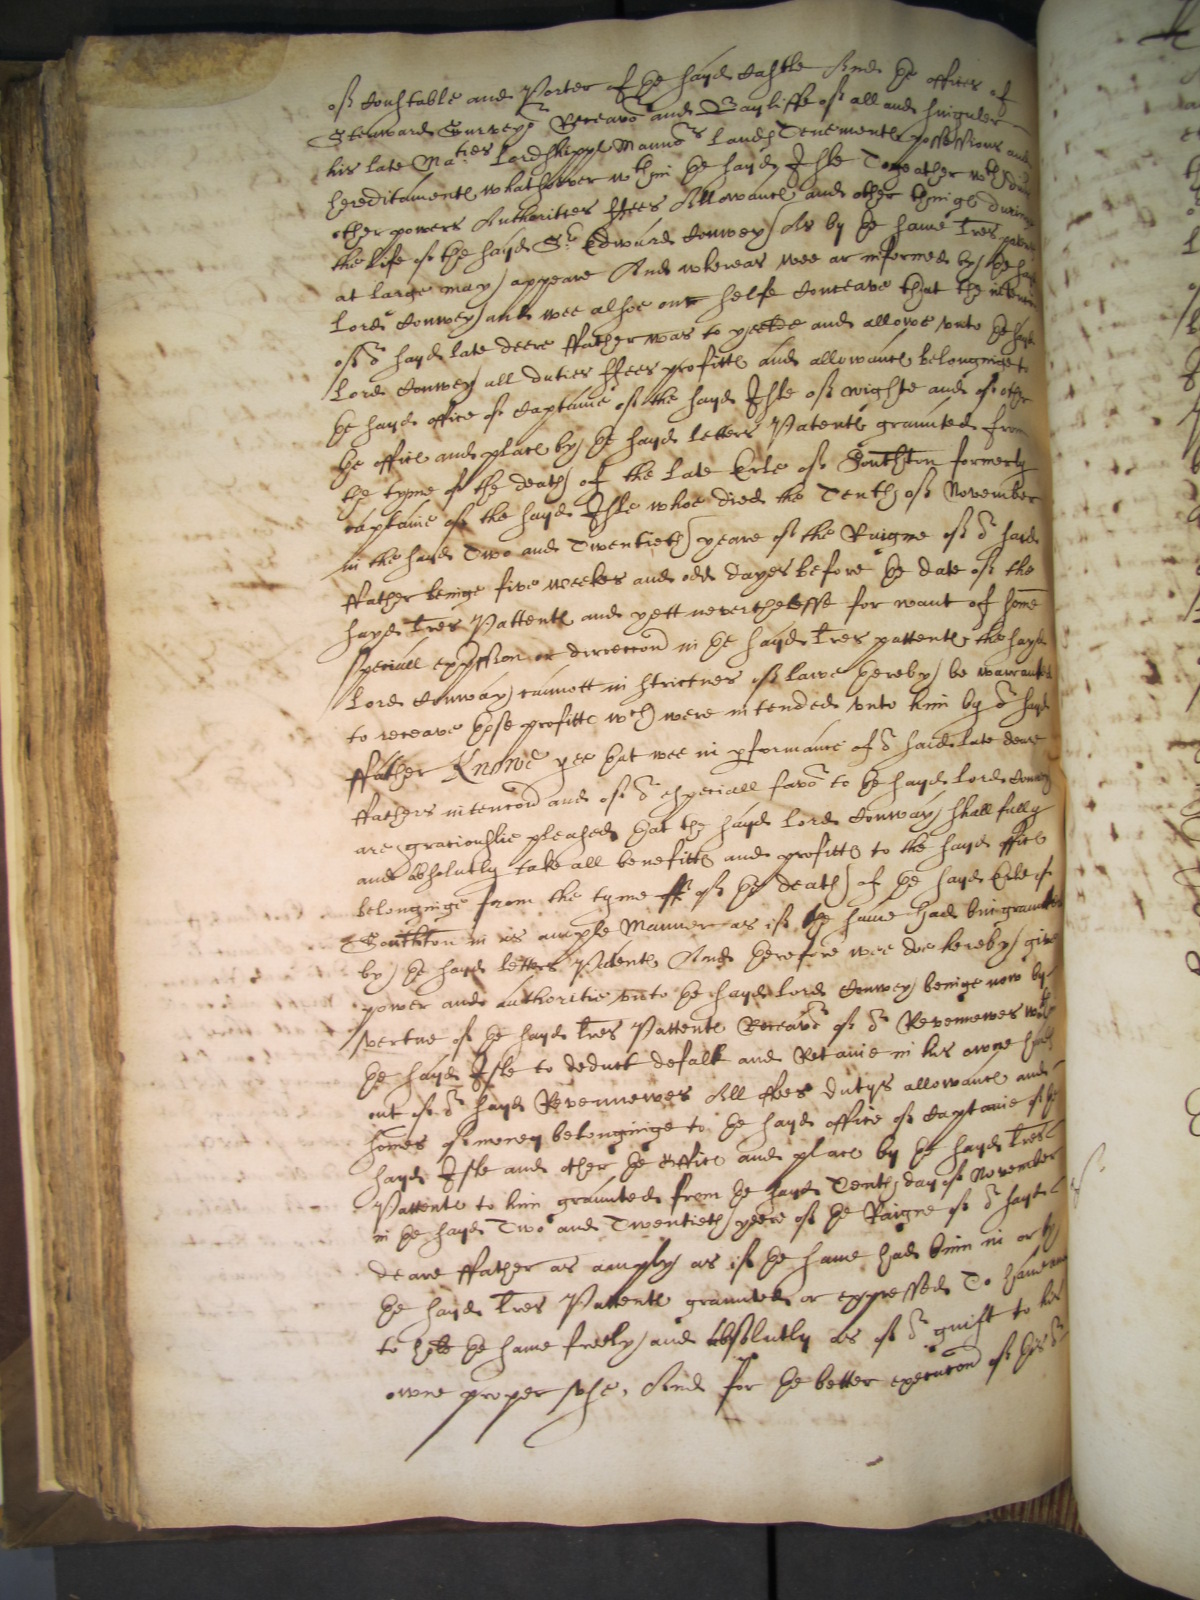 of Constable and Porter of the sayd Castle And the offices of
Steward Surveyor Receavor and Bayliffe of all and singuler
his late Maties Lordshipps Mannors Lands Tenements possessions and
hereditaments whatsoever wthin the sayd Isle Togeather wth
other powers Authorities ffees Allowance and other things during
the life of the sayd Sr Edward Conwey As by the same tres patents
at large may appeare And whereas wee ar informed by the sayd
Lord Conwey and wee alsoe our selfe Conceave that the intencon
of or sayd late deere ffather was to yeelde and allowe unto the sayd
Lord Conwey all duties ffees profitts and allowance belonginge to
the sayd office of Captaine of the sayd Isle of wighte and of other
the office and place by the sayd letters Patents graunted from
the tyme of the death of the late Erle of Southton formerly
captaine of the sayd Isle whoe died the Tenth of November
in the sayd Two and Twentieth yeare of the Raigne of or said
ffather beinge five weekes and odd dayes before the date of the
sayd tres Pattents and yett neverthelesse for want of some
speciall expssion or direccon in the sayd tres pattents the sayd
Lord Conway cannott in strictnes of lawe hereby be warranted
to receave those profitts wch were intended unto him by or sayd
ffather Knowe yee that wee in pformance of or said late deare
ffathers intencon and of or especiall favor to the sayd Lord Conwey
are graciouslie pleased that the sayd Lord Conway shall fully
and absolutly take all benefitts and profitts to the sayd office
belonginge from the tyme of the death of the sayd Erle of
Southton in as ample Manner as if the same had bin graunted
by the sayd letters Patents And therefore wee doe hereby give
power and authoritie unto the sayd Lord Conwey beinge now by
vertue of the sayd tres Pattents Receavor of or Revennewes wthin
the sayd Isle to deduct defalk and Retaine in his owne hands
out of or sayd Revennewes All ffees dutys allowance and
somes of money belonginge to the sayd office of Captaine of the
sayd Isle and other the Office and place by the sayd tres
Pattents to him graunted from the sayd Tenth day of November
in the sayd Two and Twentieth yeere of the Raigne of or sayd
deare ffather as amply as if the same had binn in or by
the sayd tres Pattents graunted or expressed To have and
to hold the same freely and absolutly as of or guift to his
owne proper use, And for the better execucon of this or